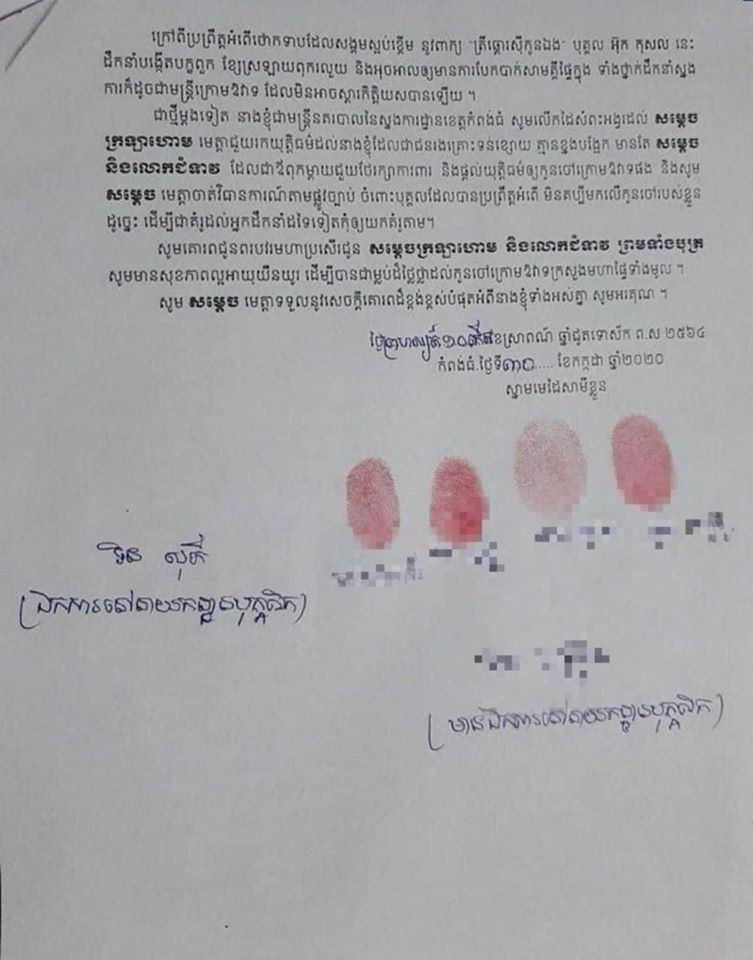 ក្រៅពីប្រព្រឹត្តអំពើថោកទាបដែលសង្គមស្អប់ខ្ពើម នូវពាក្យ "ត្រីឆ្ដោរស៊ីកូនឯង" បុគ្គល អ៊ុក កុសល នេះ
ដឹកនាំបង្កើតបក្ខពួក ខ្សែស្រឡាយពុករលួយ និងអុចអាលឲ្យមានការបែកបាក់សាមគ្គីផ្ទៃក្នុង ទាំងថ្នាក់ដឹកនាំស្នង
ការក៏ដូចជាមន្ត្រីក្រោមឱវាទ ដែលមិនអាចស្តារកិត្តិយសបានឡើយ ។
ជាថ្មីម្ដងទៀត នាងខ្ញុំជាមន្ត្រីនគរបាលនៃស្នងការដ្ឋានខេត្តកំពង់ធំ សូមលើកដៃសំពះអង្វរដល់ សម្តេច
ក្រឡាហោម មេត្តាជួយរកយុត្តិធម៌ដល់នាងខ្ញុំដែលជាជនរងគ្រោះទន់ខ្សោយ គ្មានខ្នងបង្អែក មានតែ សម្តេច
និងលោកជំទាវ ដែលជាឪពុកម្តាយជួយថែរក្សាការពារ និងផ្តល់យុត្តិធម៌ឲ្យកូនចៅក្រោមឱវាទផង និងសូម
សម្តេច មេត្តាចាត់វិធានការណ៍តាមផ្លូវច្បាប់ ចំពោះបុគ្គលដែលបានប្រព្រឹត្តអំពើ មិនគប្បីមកលើកូនចៅរបស់ខ្លួន
ដូច្នេះ ដើម្បីជាគំរូដល់អ្នកដឹកនាំដទៃទៀតកុំឲ្យយកគំរូតាម។
សូមគោរពជូនពរបវរមហាប្រសើរជូន សម្តេចក្រឡាហោម និងលោកជំទាវ ព្រមទាំងបុត្រ
សូមមានសុខភាពល្អអាយុយឺនយូរ ដើម្បីបានជាម្លប់ដ៏ថ្លៃថ្លាដល់កូនចៅក្រោមឱវាទក្រសួងមហាផ្ទៃទាំងមូល ។
សូម សម្តេច មេត្តាទទួលនូវសេចក្តីគោរពដ៏ខ្ពង់ខ្ពស់បំផុតអំពីនាងខ្ញុំទាំងអស់គ្នា សូមអរគុណ ។
ថ្ងៃព្រហស្បតិ៍ ១០កើត ខែស្រាពណ៍ ឆ្នាំជូតទោស័ក ព.ស ២៥៦៤
កំពង់ធំ.ថ្ងៃទី៣០..... ខែកក្កដា ឆ្នាំ២០២០
ស្នាមមេដៃសាមីខ្លួន